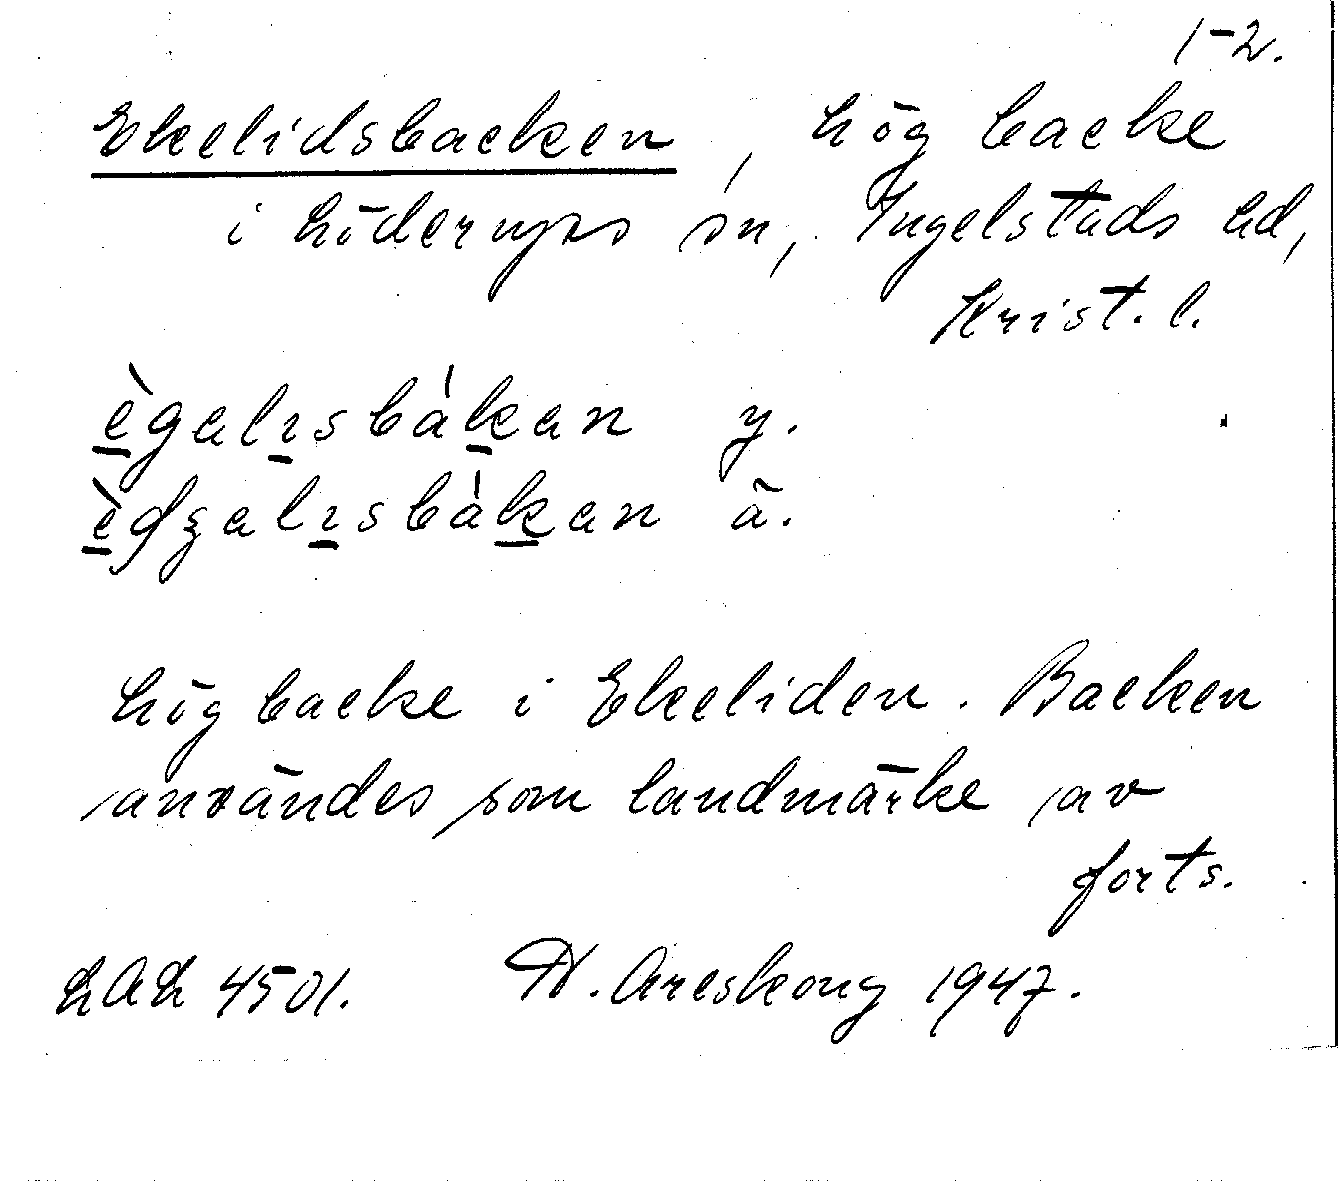 1-2.
Ekelidsbacken, hög backe
i Löderups sn, Ingelstads hd,
Krist. l.
ègalısbákan y.
èdʒalısbákan ä.
Hög backe i Ekeliden. Backen
användes som landmärke av
forts.
LAL 4501. N. Areskoug 1947.